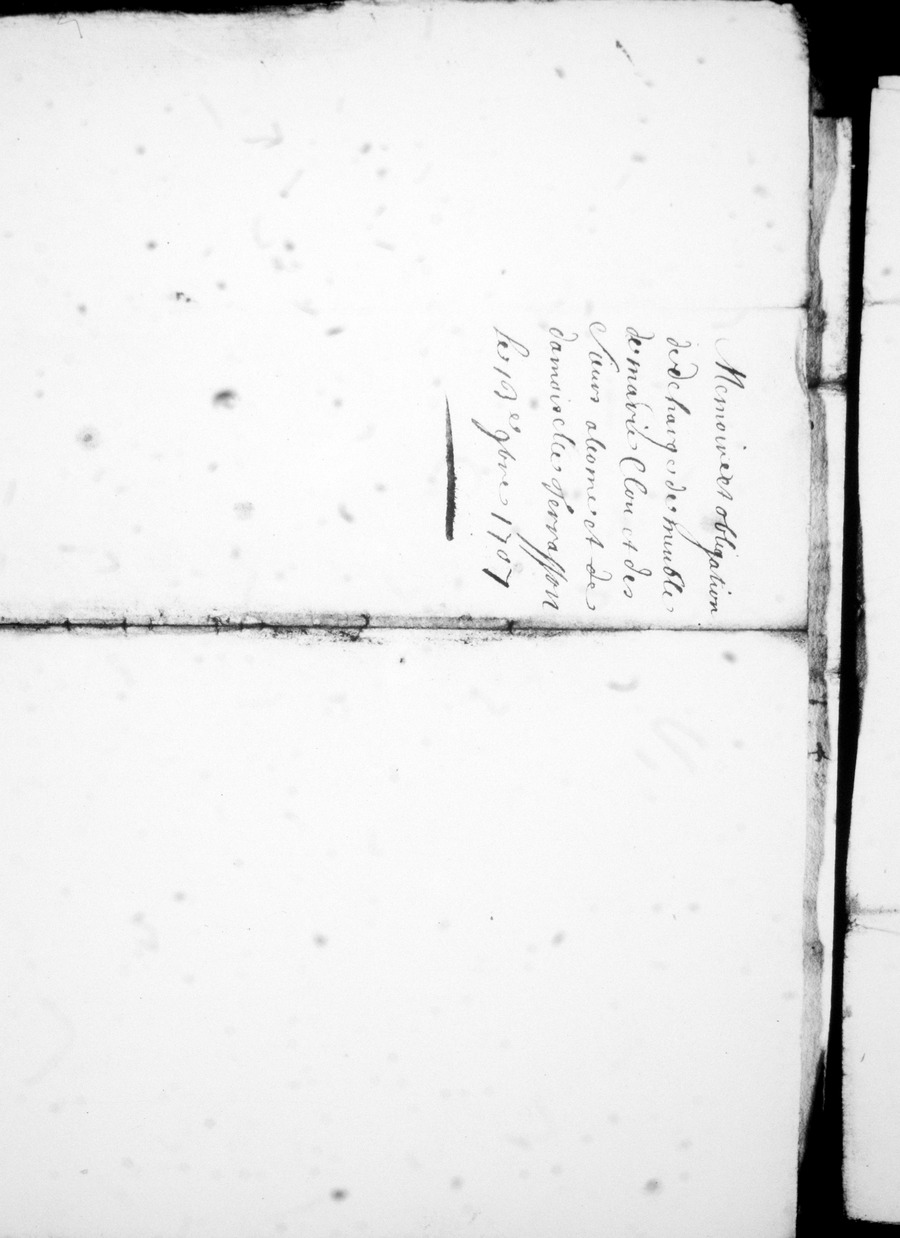 Memoire et obligation
de decharge de meuble
de marie Clou et des
Sauvs aleome et de
damoiselle Terrasson
le 13e 9bre 1707